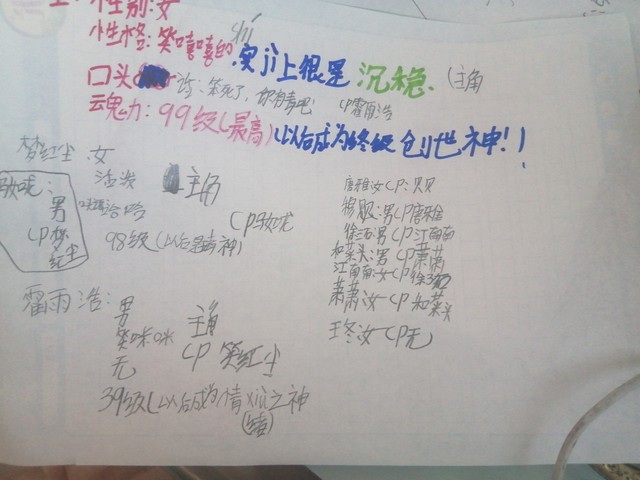 性别:女
性格:笑嘻嘻的,实jì上很是沉稳.(主角
口头 笑死了,你有青吧 CP霍雨浩
云鬼力:99级(最高)以后成为终级创世神!!
梦红尘:女
活泼 主角
CP
98级(以后是 神)
男
CP梦红尘
霍雨浩:男 主角
笑咪咪 CP 笑红尘
无
39级(以后成为情xù之神
(绪)
唐雅:女CP:贝贝
贝贝:男CP唐雅
徐三石:男CP江南南
和菜头:男CP萧萧
江南南:女CP徐三石
萧萧:女CP和菜头
王冬:女CP无